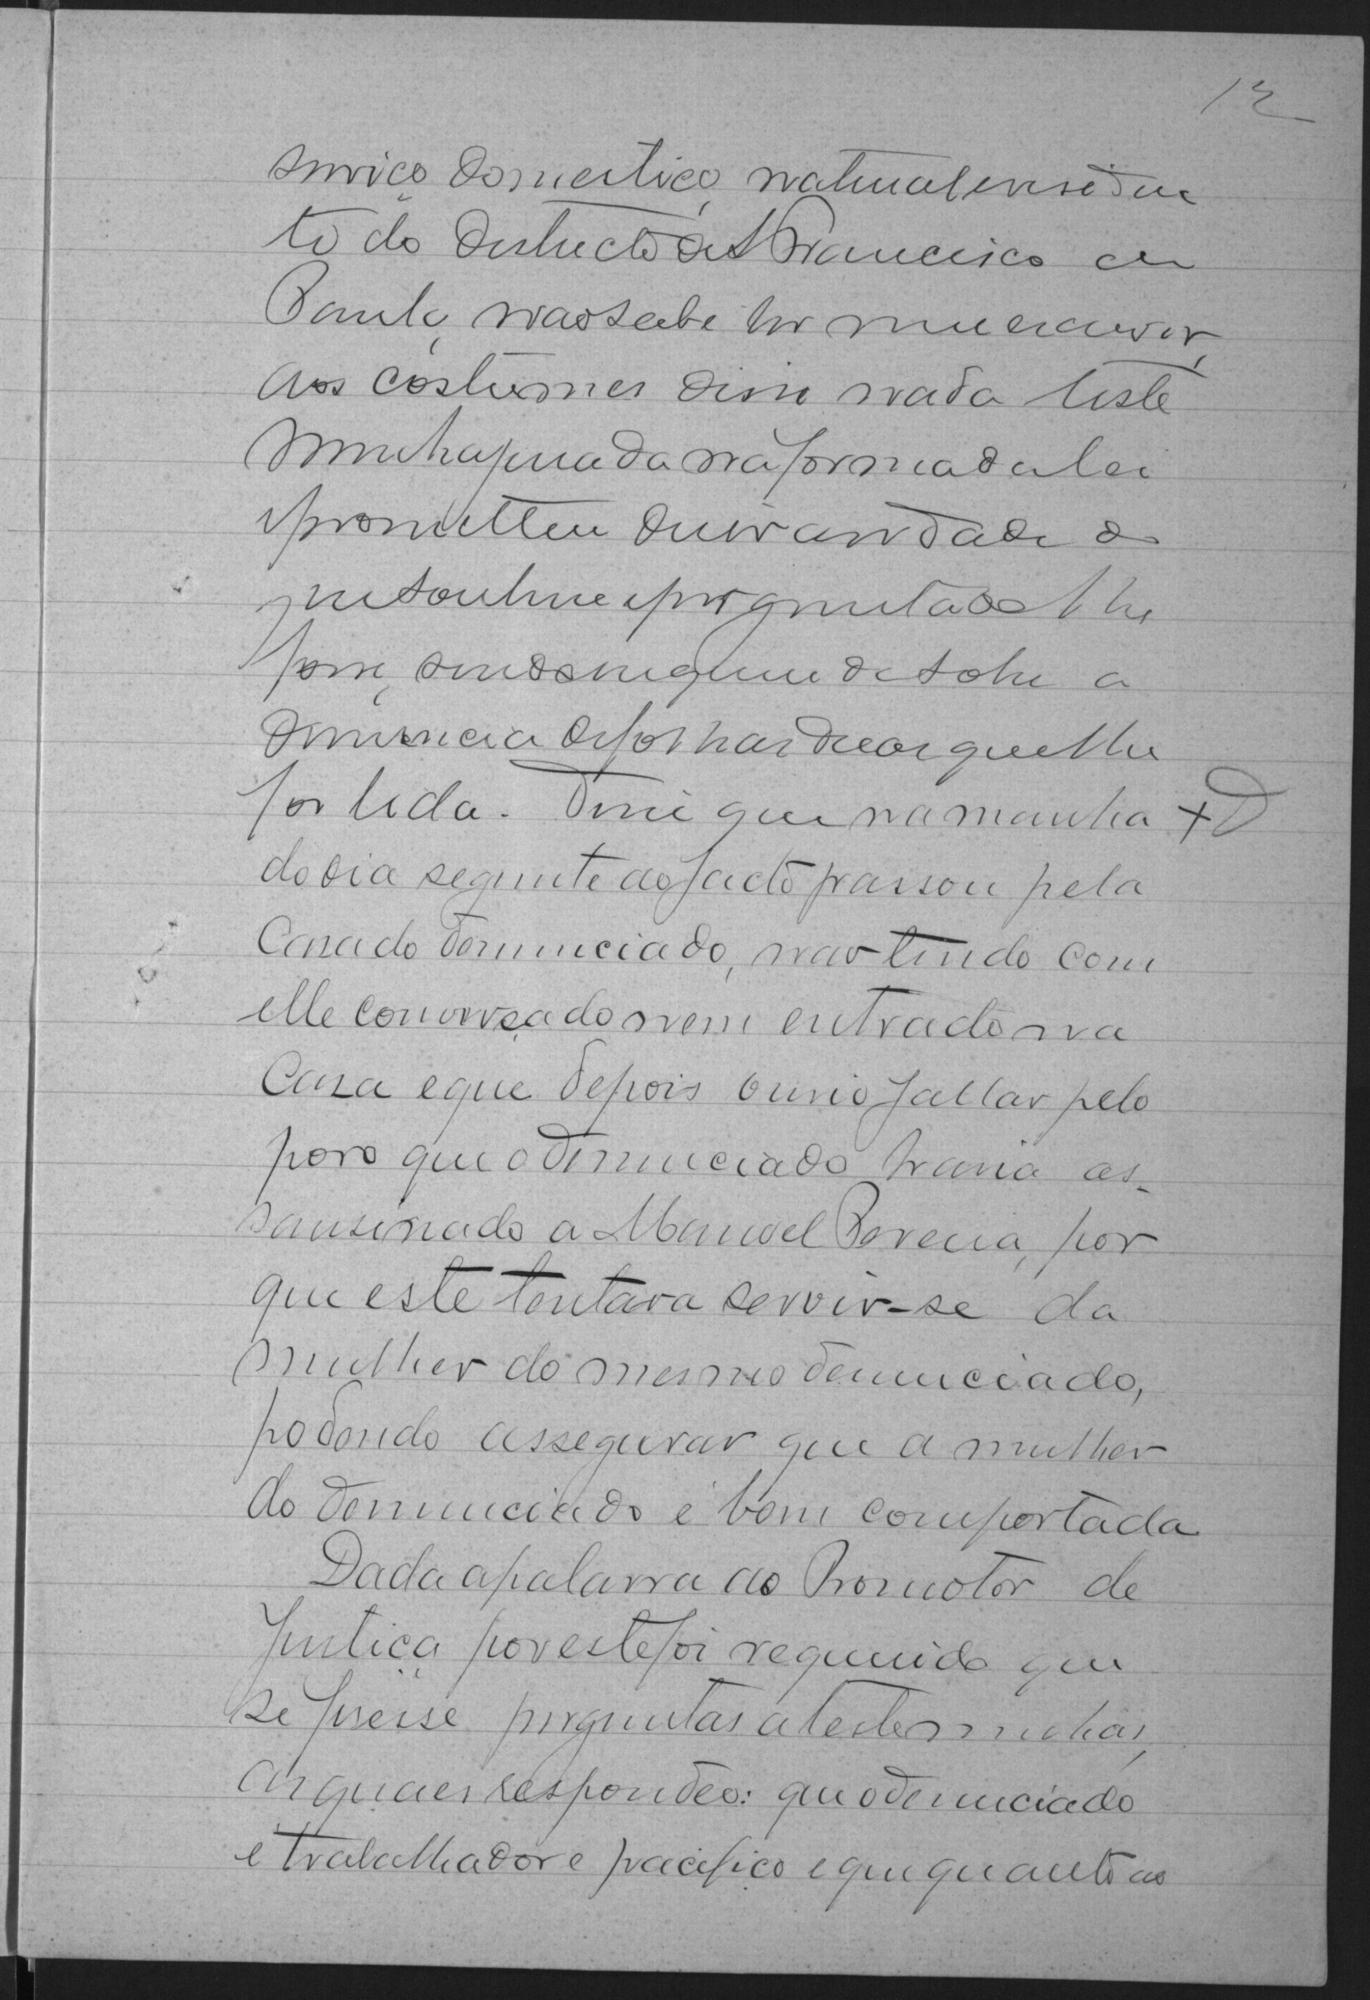 12
serviço domestico, natural e reziden
te do destricto de S Francisco de
Paula, não sabe ler nem escrever,
aos costumes disse nada. Teste
munha jurada na forma da lei
e prometteu dizer a verdade do
que soubesse e perguntado lhe
fosse, sendo inquerida sobre a
denuncia de folhas duas que lhe
foi lida. Disse que na manha + D
do dia seguinte ao facto passou pela
casa do denunciado, não tendo com
elle conversado nem entrado na
casa e que depois ouvio fallar pelo
povo que o denunciado havia as-
sassinado a Manoel Pereira, por
que este tentara servir-se da
mulher do mesmo denunciado,
podendo assegurar que a mulher
do denunciado é bem comportada
Dada a palavra ao Promotor de
Justiça por este foi requerido que
se fizesse perguntas a testemunha,
as quaes respondeo: que o denunciado
é trabalhador e pacifico e que quanto ao